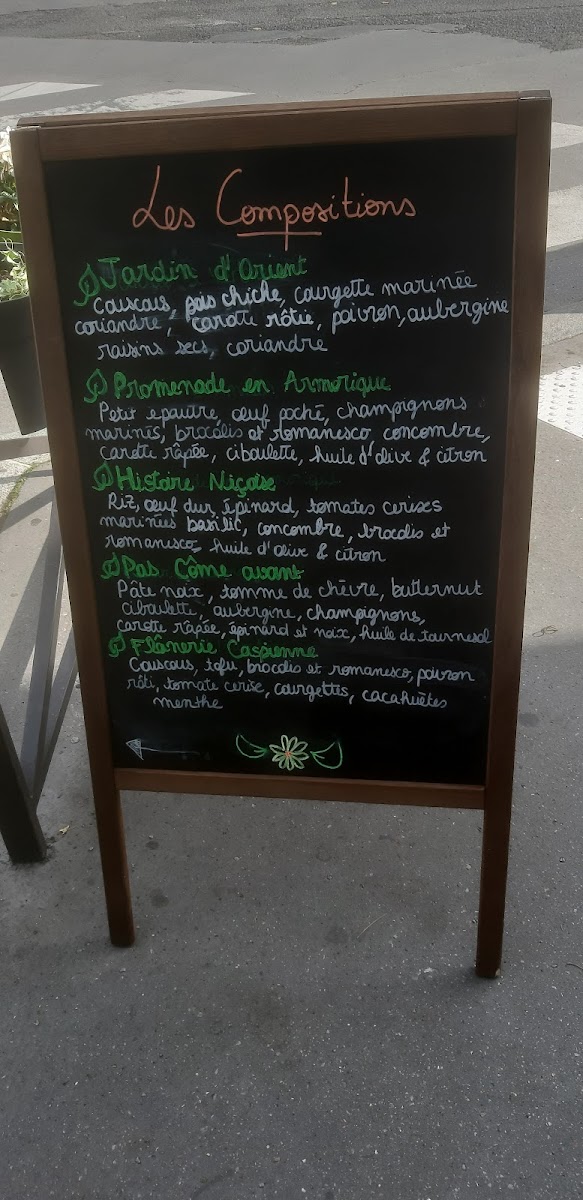 Les Compositions
Jardin d'Orient
Couscous, pois chiche, courgette marinée
coriandre, carotte rôtie, poivron, aubergine
raisins secs, coriandre
Promenade en Armorique
Petit épautre, œuf poché, champignons
marinés, brocolis et romanesco concombre,
carotte râpée, ciboulette, huile d'olive & citron
Histoire Niçoise
Riz, œuf dur, épinard, tomates cerises
marinées basilic, concombre, brocolis et
romanesco, huile d'olive & citron
Pas Côme avant
Pâte noix, tomme de chèvre, butternut
ciboulette, aubergine, champignons,
carotte râpée, épinard et noix, huile de tournesol
Flânerie Caspienne
Couscous, tofu, brocolis et romanesco, poivron
rôti, tomate cerise, courgettes, cacahuètes
menthe